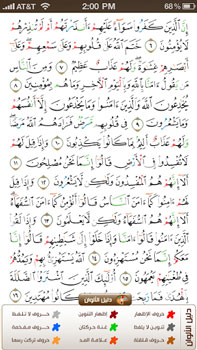 AT&T 2:00 PM 68 %
إِنَّ ٱلَّذِينَ كَفَرُوا۟ سَوَآءٌ عَلَيْهِمْ ءَأَنذَرْتَهُمْ أَمْ لَمْ تُنذِرْهُمْ
لَا يُؤْمِنُونَ ٦ خَتَمَ ٱللَّهُ عَلَىٰ قُلُوبِهِمْ وَعَلَىٰ سَمْعِهِمْ وَعَلَىٰٓ
أَبْصَٰرِهِمْ غِشَٰوَةٌ وَلَهُمْ عَذَابٌ عَظِيمٌ ٧ وَمِنَ ٱلنَّاسِ
مَن يَقُولُ ءَامَنَّا بِٱللَّهِ وَبِٱلْيَوْمِ ٱلْءَاخِرِ وَمَا هُم بِمُؤْمِنِينَ ٨
يُخَٰدِعُونَ ٱللَّهَ وَٱلَّذِينَ ءَامَنُوا۟ وَمَا يَخْدَعُونَ إِلَّآ أَنفُسَهُمْ
وَمَا يَشْعُرُونَ ٩ فِى قُلُوبِهِم مَّرَضٌ فَزَادَهُمُ ٱللَّهُ مَرَضًا
وَلَهُمْ عَذَابٌ أَلِيمٌۢ بِمَا كَانُوا۟ يَكْذِبُونَ ١٠ وَإِذَا قِيلَ لَهُمْ
لَا تُفْسِدُوا۟ فِى ٱلْأَرْضِ قَالُوٓا۟ إِنَّمَا نَحْنُ مُصْلِحُونَ ١١
أَلَآ إِنَّهُمْ هُمُ ٱلْمُفْسِدُونَ وَلَٰكِن لَّا يَشْعُرُونَ ١٢ وَإِذَا قِيلَ
لَهُمْ ءَامِنُوا۟ كَمَآ ءَامَنَ ٱلنَّاسُ قَالُوٓا۟ أَنُؤْمِنُ كَمَآ ءَامَنَ ٱلسُّفَهَآءُ
أَلَآ إِنَّهُمْ هُمُ ٱلسُّفَهَآءُ وَلَٰكِن لَّا يَعْلَمُونَ ١٣ وَإِذَا لَقُوا۟
ٱلَّذِينَ ءَامَنُوا۟ قَالُوٓا۟ ءَامَنَّا وَإِذَا خَلَوْا۟ إِلَىٰ شَيَٰطِينِهِمْ قَالُوٓا۟
إِنَّا مَعَكُمْ إِنَّمَا نَحْنُ مُسْتَهْزِءُونَ ١٤ ٱللَّهُ يَسْتَهْزِئُ بِهِمْ
وَيَمُدُّهُمْ فِى طُغْيَٰنِهِمْ يَعْمَهُونَ ١٥ أُو۟لَٰٓئِكَ ٱلَّذِينَ ٱشْتَرَوُا۟
ٱلضَّلَٰلَةَ بِٱلْهُدَىٰ فَمَا رَبِحَت تِّجَٰرَتُهُمْ وَمَا كَانُوا۟ مُهْتَدِينَ ١٦
دليل الألوان
حروف الإظهار إظهار التنوين حروف لا تلفظ
تنوين لا يلفظ غنة حركتان حروف مفخمة
حروف قلقلة علامة المد حروف تركت رسما
دليل الألوان